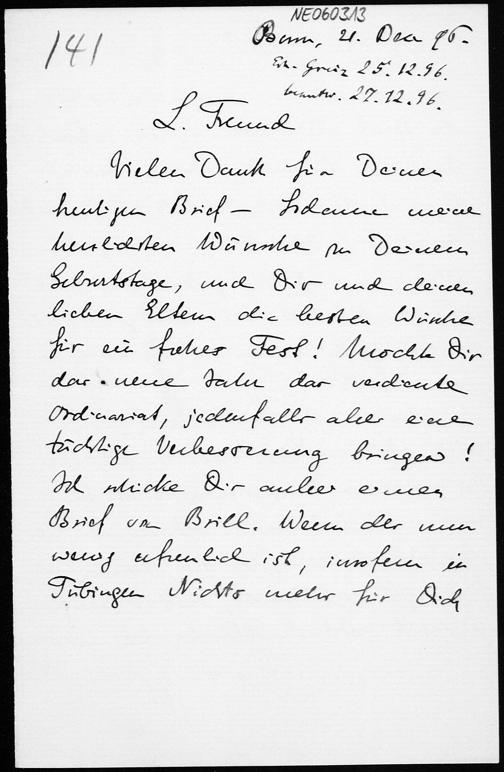 NE060313
141
Bonn, 21. Dec 96.
Erh. Greiz 25.12.96.
beantw. 27.12.96.
L. Freund
Vielen Dank für Deinen
heutigen Brief – Sodann meine
herzlichsten Wünsche zu Deinem
Geburtstage, und Dir und deinen
lieben Eltern die besten Wünsche
für ein frohes Fest! Möchte Dir
das neue Jahr das verdiente
Ordinariat, jedenfalls aber eine
tüchtige Verbesserung bringen!
Ich schicke Dir anbei einen
Brief von Brill. Wenn der nun
wenig erfreulich ist, insofern in
Tübingen Nichts mehr für Dich